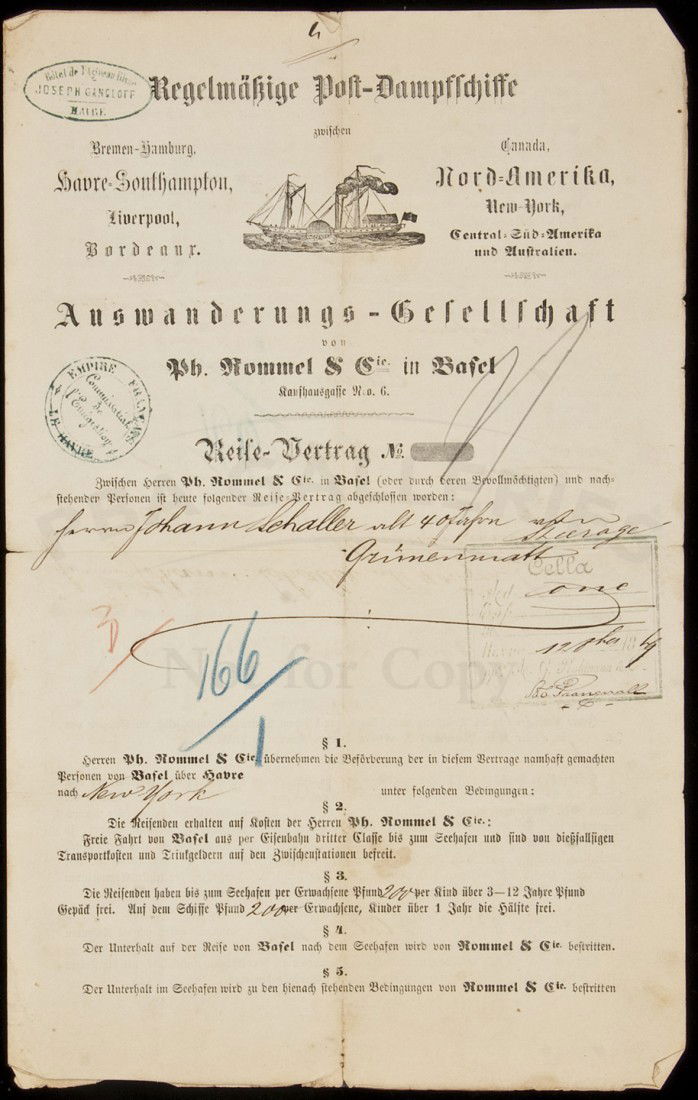 Hôtel de l'Agneau
JOSEPH GANGLOFF
HAVRE
Regelmäßige Post-Dampfschiffe
zwischen
Bremen-Hamburg,
Havre-Southampton,
Liverpool,
Bordeaux.
Canada,
Nord-Amerika,
New-York,
Central-Süd-Amerika
und Australien.
Auswanderungs-Gesellschaft
von
Ph. Rommel & Cie. in Basel
Kaufhausgasse No. 6.
EMPIRE FRANÇAIS
Commissariat
de
l'Emigration
LE HAVRE
Reise-Vertrag No.
Zwischen Herren Ph. Rommel & Cie. in Basel (oder durch deren Bevollmächtigten) und nach-
stehender Personen ist heute folgender Reise-Vertrag abgeschlossen worden:
Herrn Johann Schaller alt 40 Jahre
Steerage
Grünenmatt
Cella
one
3
166/1
Not for Copy
§ 1.
Herren Ph. Rommel & Cie. übernehmen die Beförderung der in diesem Vertrage namhaft gemachten
Personen von Basel über Havre
nach New York unter folgenden Bedingungen:
§ 2.
Die Reisenden erhalten auf Kosten der Herren Ph. Rommel & Cie.:
Freie Fahrt von Basel aus per Eisenbahn dritter Classe bis zum Seehafen und sind von dießfallsigen
Transportkosten und Trinkgeldern auf den Zwischenstationen befreit.
§ 3.
Die Reisenden haben bis zum Seehafen per Erwachsene Pfund 200 per Kind über 3–12 Jahre Pfund
Gepäck frei. Auf dem Schiffe Pfund 200 per Erwachsene, Kinder über 1 Jahr die Hälfte frei.
§ 4.
Der Unterhalt auf der Reise von Basel nach dem Seehafen wird von Rommel & Cie. bestritten.
§ 5.
Der Unterhalt im Seehafen wird zu den hienach stehenden Bedingungen von Rommel & Cie. bestritten